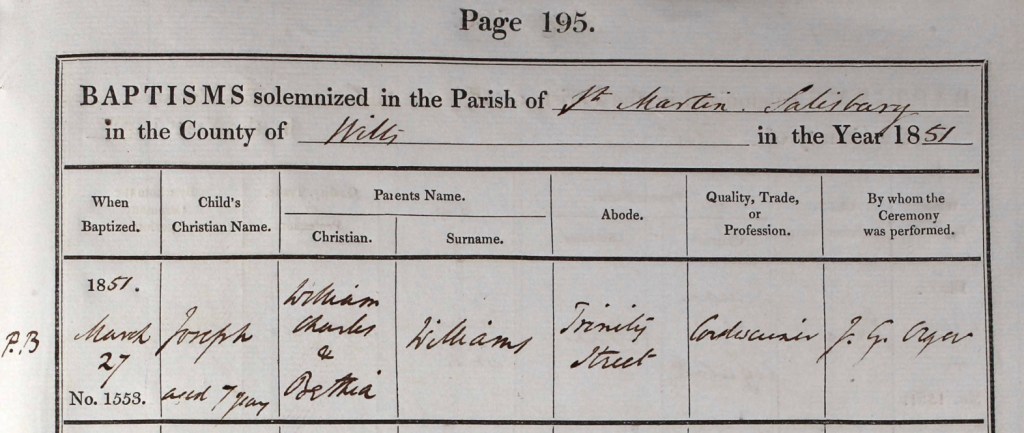 Page 195.
BAPTISMS solemnized in the Parish of St Martin Salisbury
in the County of Wilts in the Year 1851
When Baptized.
Child's Christian Name.
Parents Name.
Christian.
Surname.
Abode.
Quality, Trade, or Profession.
By whom the Ceremony was performed.
P.B
1851.
March
27
No. 1553.
Joseph
aged 7 years
William
Charles
&
Bethia
Williams
Trinity
Street
Cordwainer
J. G.